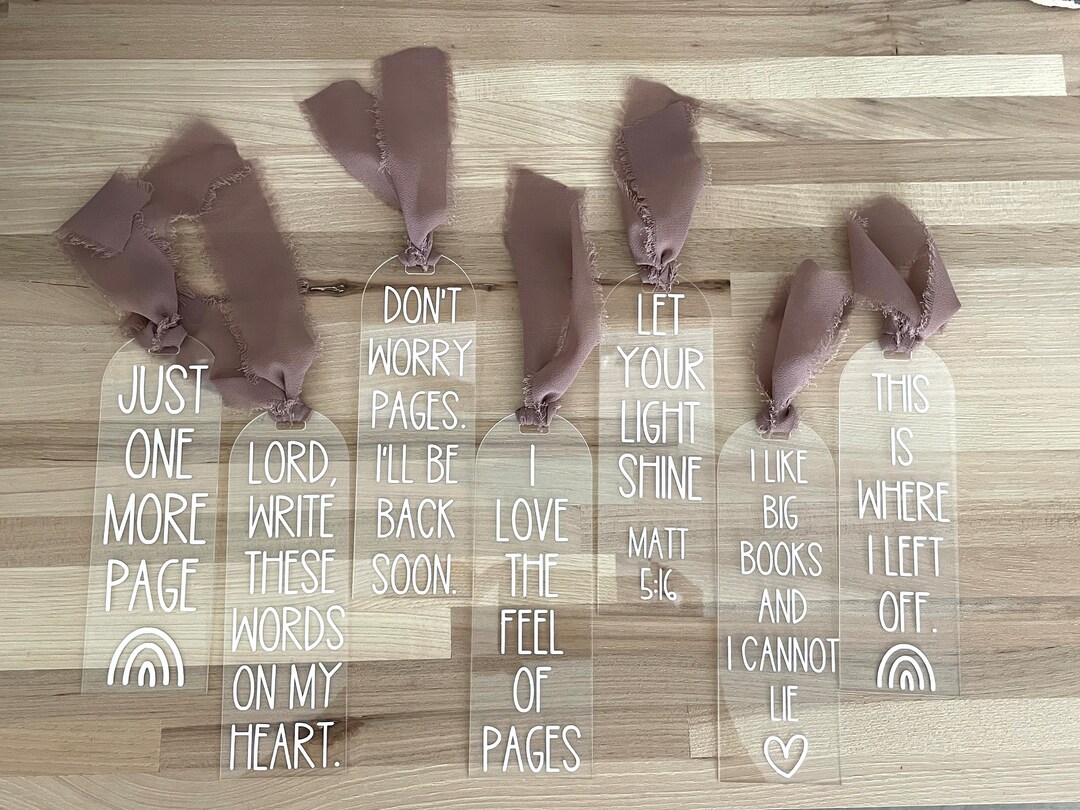 JUST
ONE
MORE
PAGE
LORD,
WRITE
THESE
WORDS
ON MY
HEART.
DON'T
WORRY
PAGES.
I'LL BE
BACK
SOON.
I
LOVE
THE
FEEL
OF
PAGES
LET
YOUR
LIGHT
SHINE
MATT
5:16
I LIKE
BIG
BOOKS
AND
I CANNOT
LIE
THIS
IS
WHERE
I LEFT
OFF.